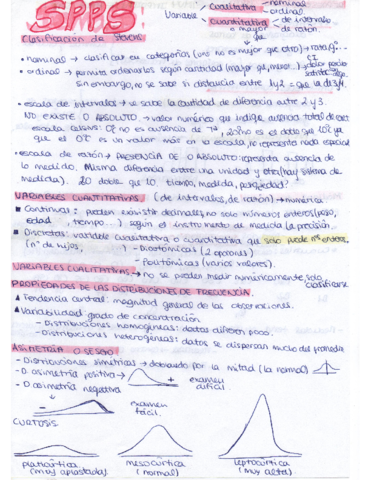 SPPS
Variable cualitativa nominal
ordinal
cuantitativa de intervalo
o mayor de razón
que
Clasificación de Stevens
• nominal → clasificar en categorías (uno no es mejor que otro)
• ordinal → permite ordenarlas según cantidad (mayor que, menor...)
sin embargo, no se sabe si distancia entre 1 y 2 = que la de 3/4.
• escala de intervalos → se sabe la cantidad de diferencia entre 2 y 3.
NO EXISTE 0 ABSOLUTO → valor numérico que indique ausencia total de
escala Celsius: 0º no es ausencia de Tª, 20º no es el doble que 10º ya
que el 0º es un valor más en la escala, no representa nada especial
• escala de razón → PRESENCIA DE 0 ABSOLUTO: representa ausencia de
lo medido. Misma diferencia entre una unidad y otra (hay sistema de
medida). 20 doble que 10. tiempo, medida,
VARIABLES CUANTITATIVAS (de intervalos, de razón) → numérica
■ Continuas: pueden existir decimales, no solo números enteros (peso,
edad tiempo...) según el instrumento de medida (la precisión,
■ Discretas: variable cualitativa o cuantitativa que solo puede nos enteros
(nº de hijos, ) - Dicotómicas (2 opciones)
- Politómicas (varios valores).
VARIABLES CUALITATIVAS → no se pueden medir numéricamente, solo
clasificarse
PROPIEDADES DE LAS DISTRIBUCIONES DE FRECUENCIA
▲ Tendencia central: magnitud general de las observaciones.
▲ Variabilidad grado de concentración
- Distribuciones homogéneas: datos difieren poco.
- Distribuciones heterogéneas: datos se dispersan mucho del promedio
ASIMETRÍA O SESGO
- Distribuciones simétricas → doblando por la mitad (la normal)
- D asimetría positiva → + examen
difícil
- D asimetría negativa
- examen
fácil.
CURTOSIS
platicúrtica mesocúrtica leptocúrtica
(muy aplastada) (normal) (muy alta)